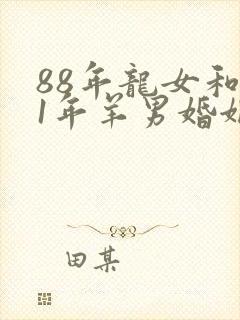 88年龍女和
1年羊男婚姻
田某